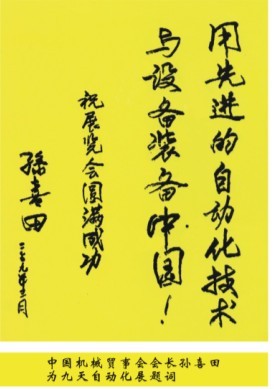 用先进的自动化技术
与设备装备中国！
祝展览会圆满成功
孙喜田
中国机械贸事会会长孙喜田
为九天自动化展题词